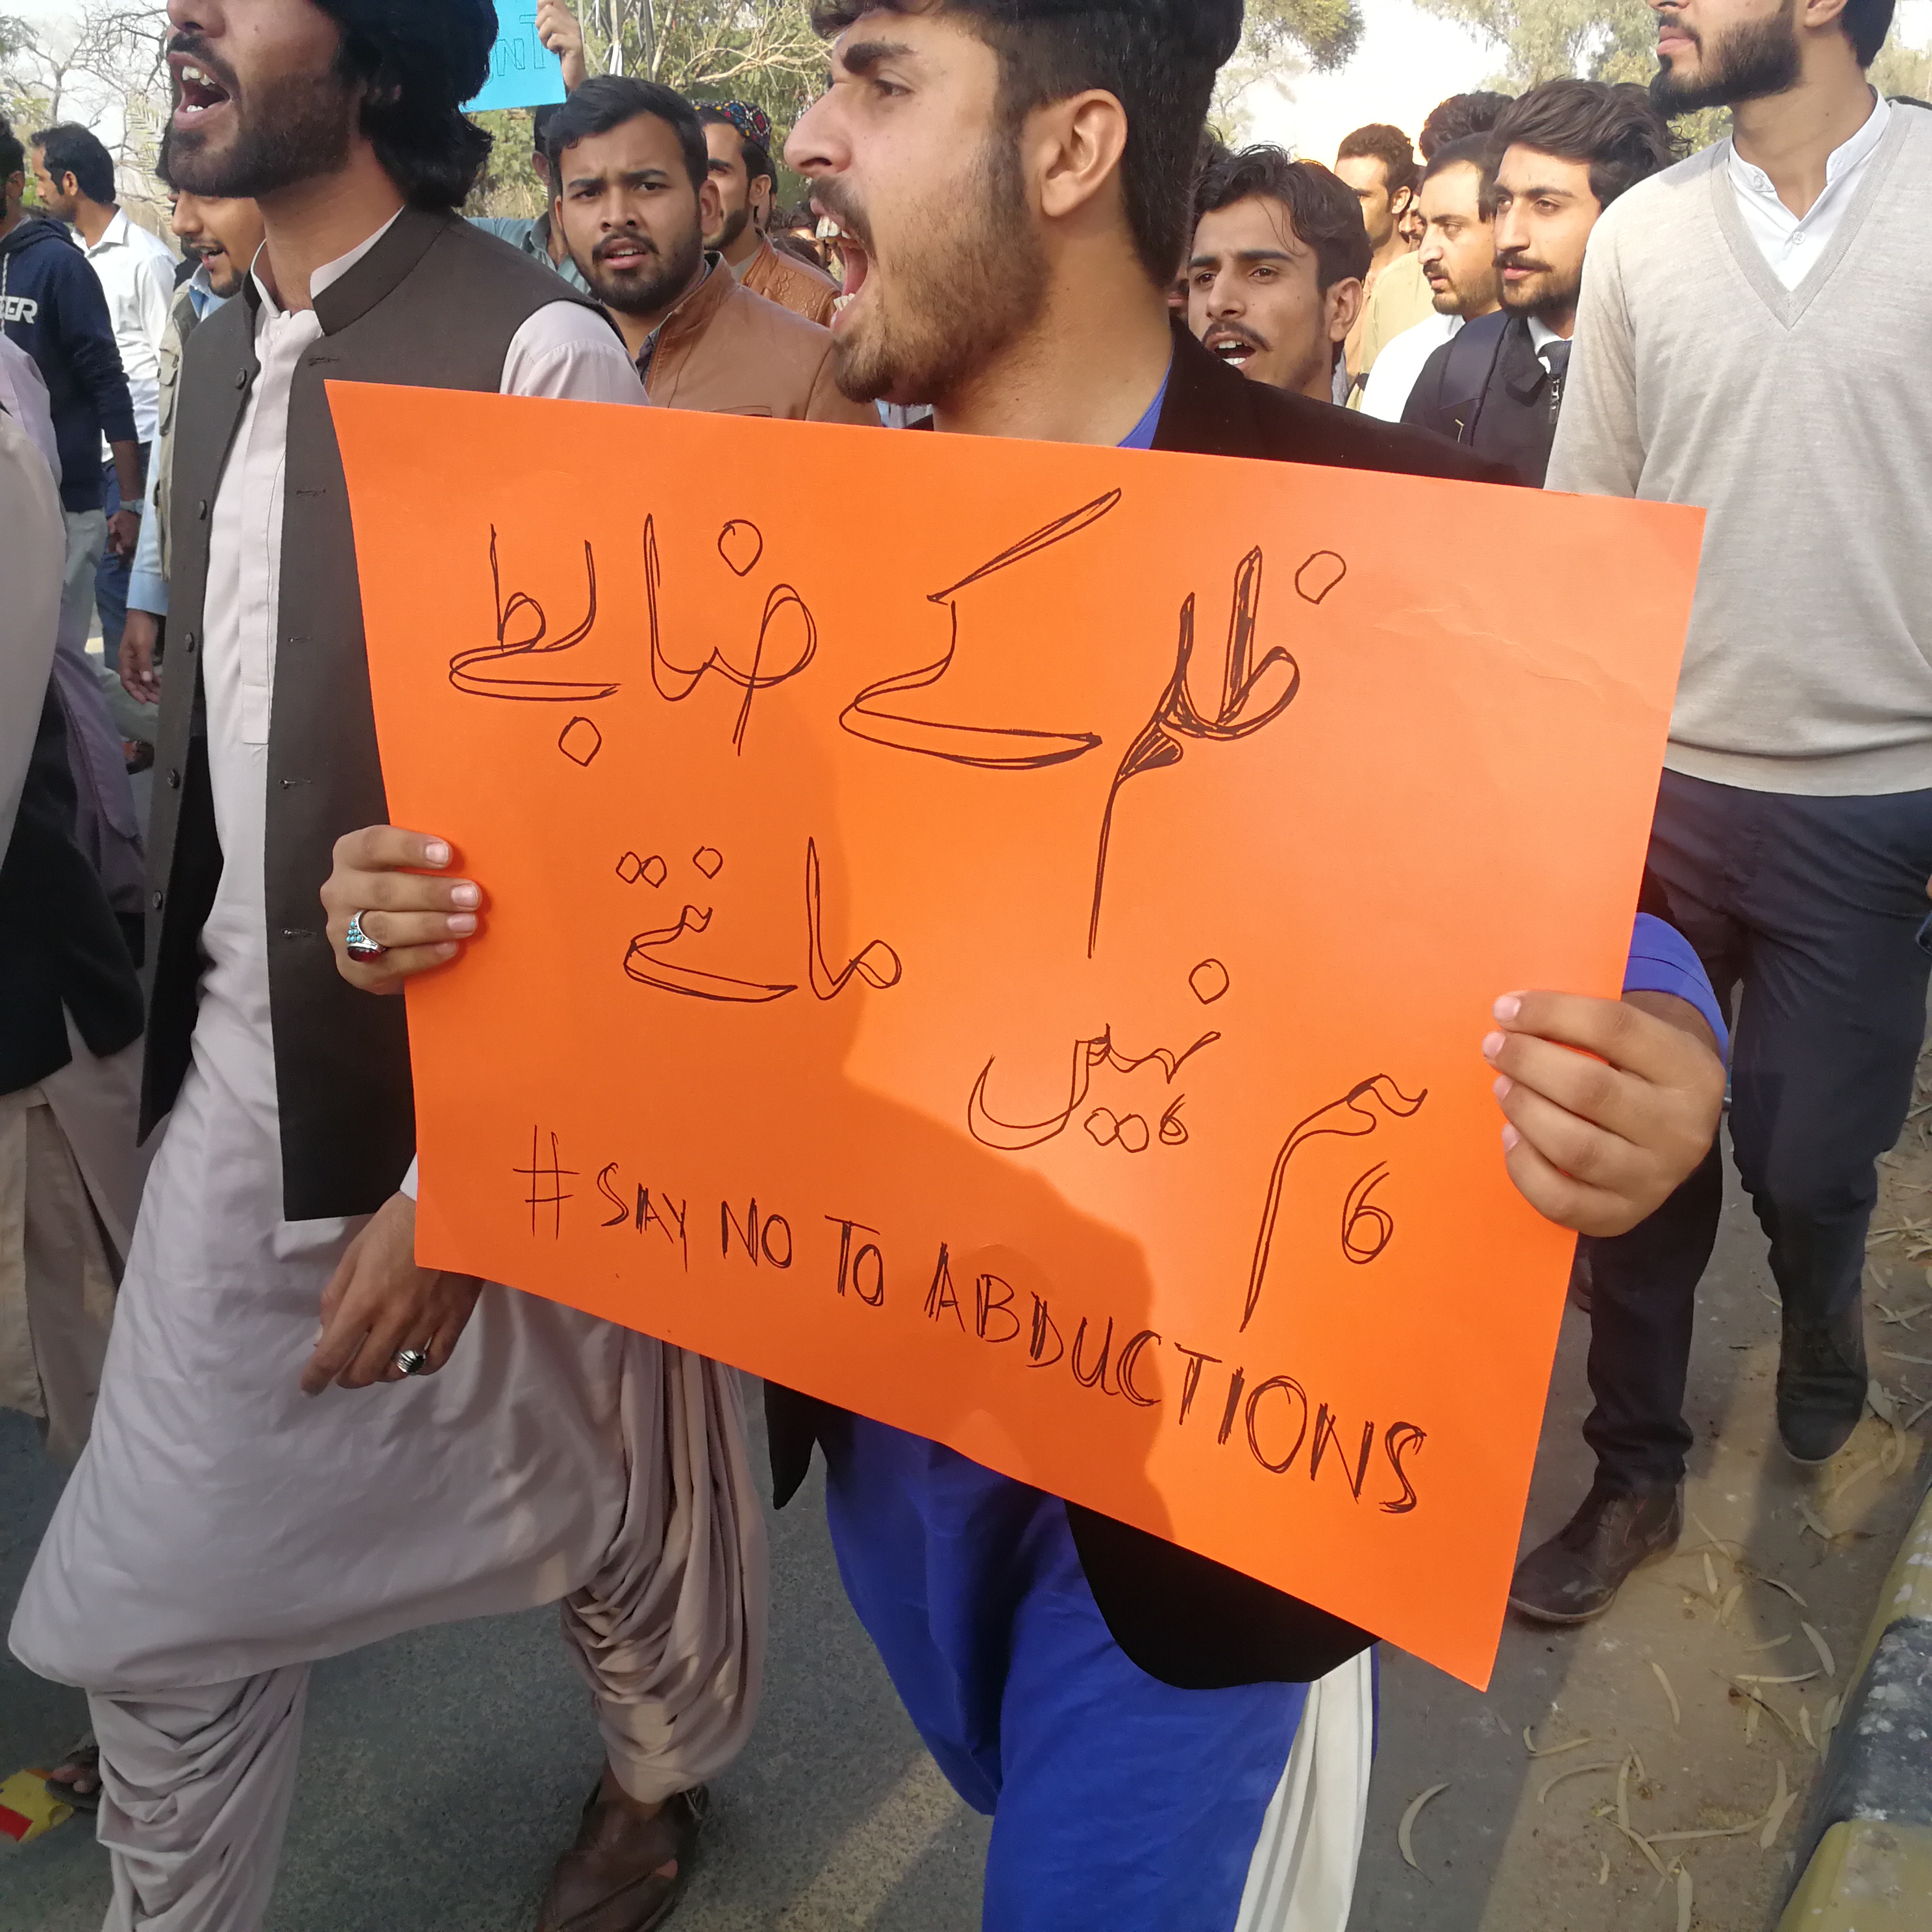 ظلم کے ضابطے
ہم نہیں مانتے
# SAY NO TO ABDUCTIONS